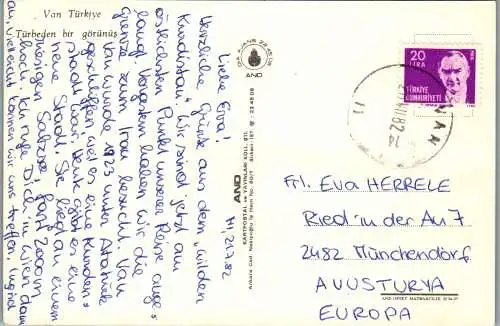 Van Türkiye
Türbeden bir görünüş
Mi 21.7.82
Liebe Eva!
Herzliche Grüße aus dem "wilden
Kurdistan". Wir sind jetzt am
östlichsten Punkt unserer Reise ange-
langt. Vorgestern haben wir die
Grenze zum Iran besucht. Van
Van wurde 1923 unter Atatürk
geschliffen, weil es eine Kurden-
stadt war; heute gibt es eine
neue Stadt. Sie liegt an einem
riesigen Salzsee, fast 2000m
hoch. Ich rufe Dich in Wien dann
an, vielleicht können wir uns treffen.
AND
AND
KARTPOSTAL ve YAYINLARI KOLL. ŞTİ.
20 LİRA
TÜRKİYE
CUMHURİYETİ
VAN
Frl. Eva HERRELE
Ried in der Au 7
2482 Münchendorf
AVUSTURYA
EUROPA